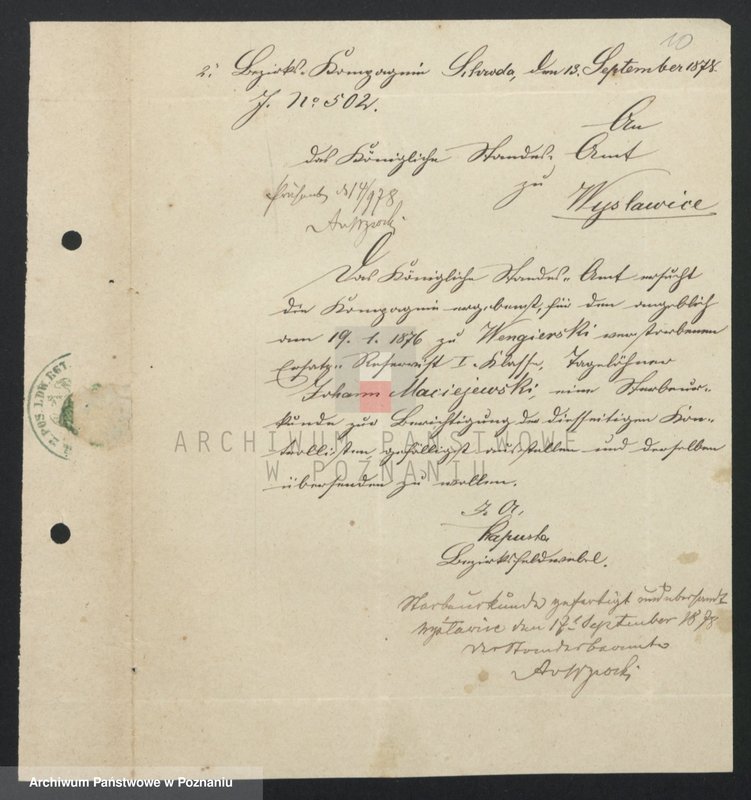 10
2. Bezirks-Kompagnie Schroda, den 13. September 1878.
J. No 502.
An
das Königliche Standes-Amt
zu
Wyslawice
Präsent d 14/9 78
Das Königliche Standes-Amt ersucht
die Kompagnie ergebenst, für den angeblich
am 19. 1. 1876 zu Wengierski verstorbenen
Ersatz-Reservist I. Klasse, Tagelöhner
Johann Maciejewski, eine Sterbeur-
kunde zur Berichtigung der diesseitigen Kon-
trollisten gefälligst ausstellen und derselben
übersenden zu wollen.
Kapusta
Bezirksfeldwebel.
Sterbeurkunde gefertigt und übersandt
Wyslawice den 17t September 1878
der Standesbeamte
2 POS. LDW. RGT.
ARCHIWUM PAŃSTWOWE
W POZNANIU
Archiwum Państwowe w Poznaniu